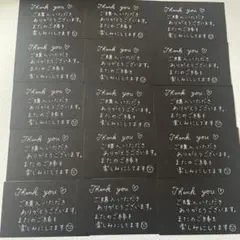 Thank you ♡
ご購入いただき
ありがとうございます。
またのご縁を
楽しみにしてます
Thank you ♡
ご購入いただき
ありがとうございます。
またのご縁を
楽しみにしてます
Thank you ♡
ご購入いただき
ありがとうございます。
またのご縁を
楽しみにしてます
Thank you ♡
ご購入いただき
ありがとうございます。
またのご縁を
楽しみにしてます
Thank you ♡
ご購入いただき
ありがとうございます。
またのご縁を
楽しみにしてます
Thank you ♡
ご購入いただき
ありがとうございます。
またのご縁を
楽しみにしてます
Thank you ♡
ご購入いただき
ありがとうございます。
またのご縁を
楽しみにしてます
Thank you ♡
ご購入いただき
ありがとうございます。
またのご縁を
楽しみにしてます
Thank you ♡
ご購入いただき
ありがとうございます。
またのご縁を
楽しみにしてます
Thank you ♡
ご購入いただき
ありがとうございます。
またのご縁を
楽しみにしてます
Thank you ♡
ご購入いただき
ありがとうございます。
またのご縁を
楽しみにしてます
Thank you ♡
ご購入いただき
ありがとうございます。
またのご縁を
楽しみにしてます
Thank you ♡
ご購入いただき
ありがとうございます。
またのご縁を
楽しみにしてます
Thank you ♡
ご購入いただき
ありがとうございます。
またのご縁を
楽しみにしてます
Thank you ♡
ご購入いただき
ありがとうございます。
またのご縁を
楽しみにしてます